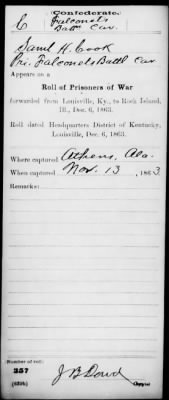 Confederate.
C Falconets
Batt'n Cav.
Saml H. Cook
Pri. Falconets Battl Cav
Appears on a
Roll of Prisoners of War
forwarded from Louisville, Ky., to Rock Island,
Ill., Dec. 6, 1863.
Roll dated Headquarters District of Kentucky,
Louisville, Dec. 6, 1863.
Where captured Athens, Ala.
When captured Nov. 13, 1863
Remarks:
Number of roll:
257
J B Dowd
Copyist